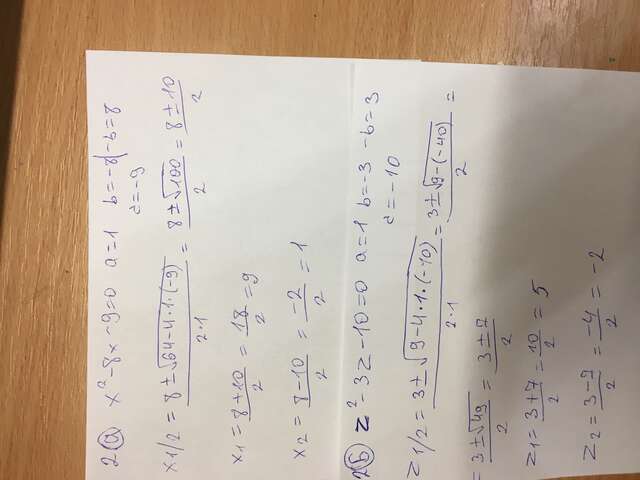 2. а x² - 8x - 9 = 0 a = 1 b = -8 | -b = 8
c = -9
x1/2 = (8 ± √(64 - 4·1·(-9)))/(2·1) = (8 ± √100)/2 = (8 ± 10)/2
x₁ = (8+10)/2 = 18/2 = 9
x₂ = (8-10)/2 = -2/2 = 1
2 Б z² - 3z - 10 = 0 a = 1 b = -3 -b = 3
c = -10
z1/2 = (3 ± √(9 - 4·1·(-10)))/(2·1) = (3 ± √(9 - (-40)))/2 =
= (3 ± √49)/2 = (3 ± 7)/2
z₁ = (3+7)/2 = 10/2 = 5
z₂ = (3-9)/2 = -4/2 = -2